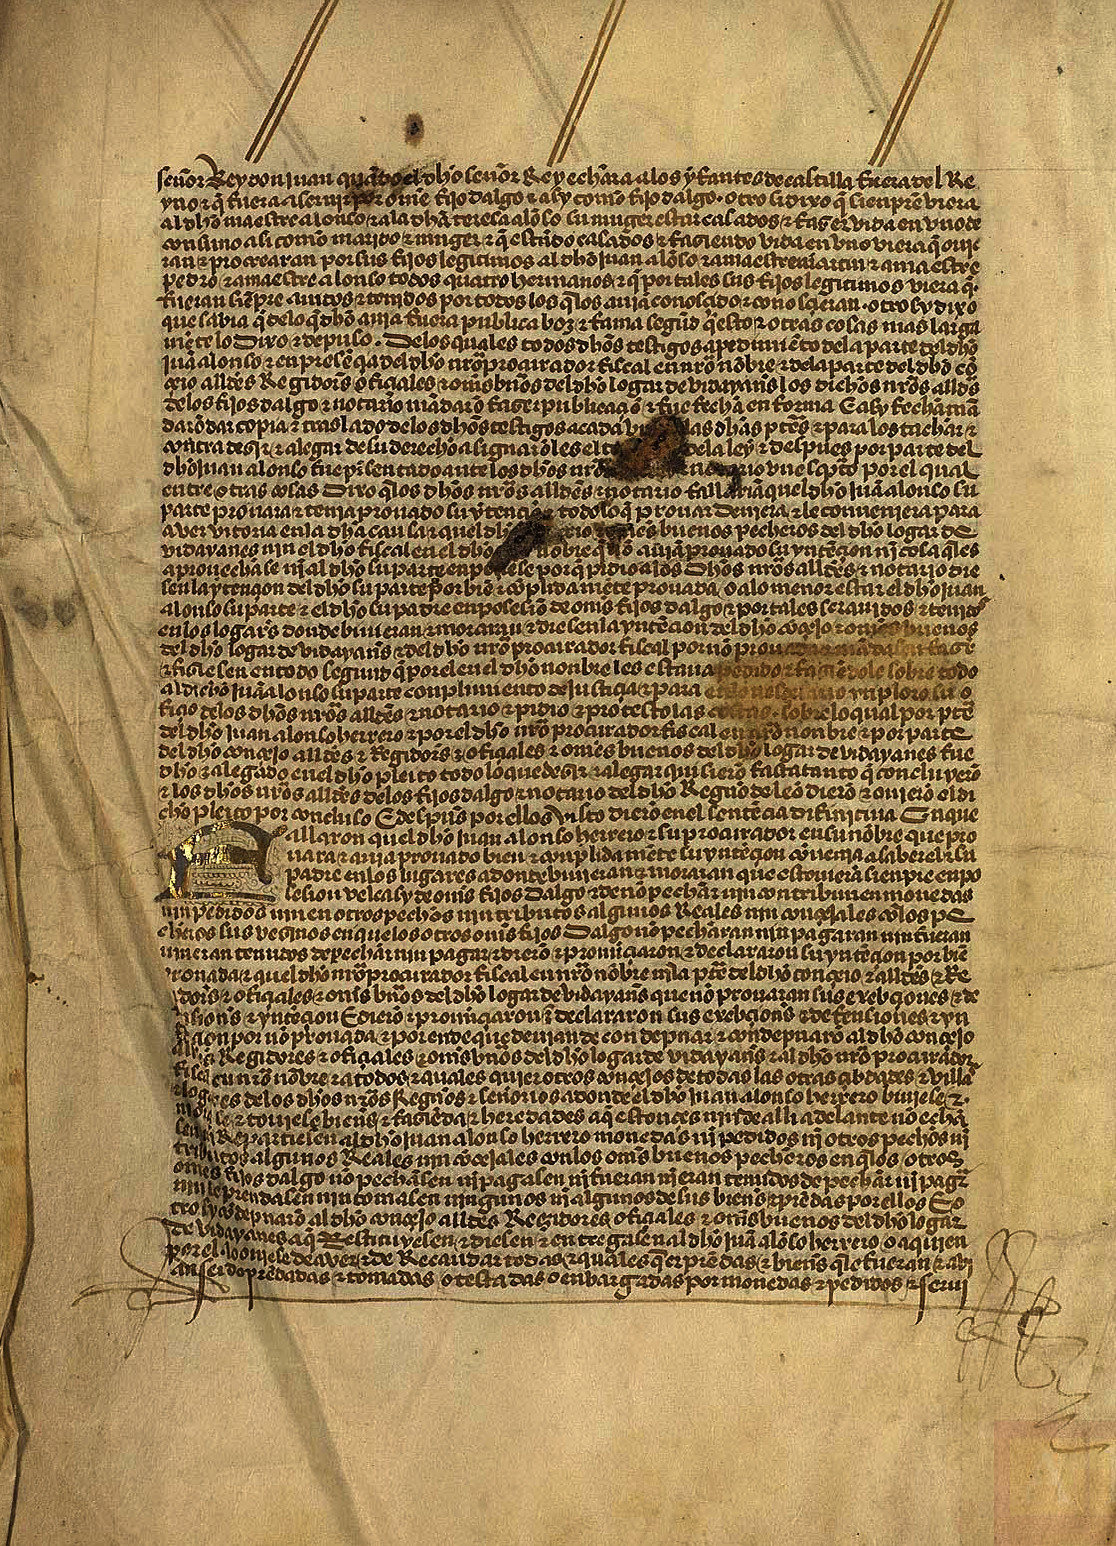 señor Rey don juan quãdo el dho señor Rey echara a los yfantes de castilla fuera del Re
yno & q̃ fuera a seruir por ome fijo dalgo & asy como fijo dalgo. otro si dixo q̃ sienpre viera
al dho maestre alonso & a la dha teresa alõso su muger estar casados & faser vida en vno de
consuno asi como marido & muger & q̃ estãdo casados & faciendo vida en vno viera q̃ ouie
ran & procrearan por sus fijos legitimos al dho juan alõso & a maestre martin & a maestre
pedro & a maestre alonso todos quatro hermanos & q̃ por tales sus fijos legitimos viera q̃
fueran siẽpre auidos & tenidos por todos los q̃ los auiã conosçido & conosçieran. otro sy dixo
que sabia q̃ de lo q̃ dho auia fuera publica boz & fama segũd q̃ esto & otras cosas mas larga
mẽte lo dixo & depuso. De los quales todos dhos testigos a pedimiẽto de la parte del dho
juã alonso & en presẽçia del dho nrõ procurador fiscal en nrõ nõbre & de la parte del dho cõ
çejo alldẽs Regidors ofiçiales & oms bños del dho logar de vidayans los dichos nrõs alldẽs
de los fijos dalgo & notario mãdarõ faser publicaçiõ & fue fecha en forma E asy fecha mã
darõ dar copia & traslado de los dhos testigos a cada vna de las dhas ptẽs & para los tachar &
contradesir & alegar de su derecho asignarõles el de la ley & despues por parte del
dho juan alonso fue presentado ante los dhos nrõs notario vn escpto por el qual
entre otras cosas Dixo q̃ los dhos nrõs alldẽs & notario fallariã quel dho juã alonso su
parte prouara & tenia prouado su yntẽçiõ & todo lo q̃ prouar deuiera & le conueniera para
aver vitoria en la dha causa & quel dho omes buenos pecheros del dho logar de
vidayanes nin el dho fiscal en el dho nonbre q̃ nõ auiã prouado su yntẽçion nj cosa q̃ les
aprouechase nj al dho su parte enpeçiese por q̃ pidio a los Dhos nrõs alldẽs & notario die
sen la yntençion del dho su parte por biẽ & cõplidamẽte prouada, o a lo menor estar el dho juan
alonso su parte & el dho su padre en posesiõ de oms fijos dalgo & por tales ser auidos & tenidos
en los logars donde biuieran & moraran & diesen la yntençion del dho cõçejo & omes buenos
del dho logar de vidayans & del dho nrõ procurador fiscal por nõ prouada & mãdasen faser
& fisiesen en todo segund q̃ por el en el dho nonbre les estaua pedido & fasiẽdole sobre todo
al dicho juã alonso su parte conplimiento de justiçia & para ynploro su o
fiçio de los dhos nrõs alldẽs & notario & pidio & protesto las costas. sobre lo qual por ptẽ
del dho juan alonso herrero & por el dho nrõ procurador fiscal en nrõ nonbre & por parte
del dho conçejo alldẽs & Regidors & ofiçiales & omes buenos del dho logar de vidayanes fue
dho & alegado en el dho pleito todo lo que desir & alegar quisierõ fasta tanto q̃ concluyerõ
& los dhos nrõs alldẽs de los fijos dalgo & notario del dho Regno de leõ dierõ & ouierõ el di
cho pleito por concluso E despues por ellos visto dierõ en el sentẽçia difinitiua En que
fallaron quel dho juan alonso herrero & su procurador en su nõbre que pro
uara & auia prouado bien & conplida mẽte su yntẽçion cõuenia a saber el & su
padre en los lugares a donde biuieran & moraran que estouierã sienpre en po
sesion vel casy de oms fijos Dalgo & de nõ pechar nin contribuir en monedas
nin pedidos nin en otros pechos nin tributos algunos Reales nin conçejales cõ los pe
cheros sus vesinos en que los otros oms fijos Dalgo nõ pecharan nin pagaran nin fueran
nin eran tenudos de pechar nin pagar & dierõ & pronũçiaron & declararon su yntẽçion por biẽ
prouada & quel dho nrõ procurador fiscal en nrõ nõbre nin la ptẽ del dho conçejo & alldẽs & Re
gidors & ofiçiales & oms bños del dho logar de vidayans que nõ prouaran sus exebçiones & de
fensions & yntẽçion E dierõ & pronũçiaron & declararon sus exebçions & defensiones & yn
tẽçion por nõ prouada & por ende que deuian de condepnar & condepnarõ al dho conçejo
alldẽs Regidores & ofiçiales & oms bños del dho logar de vidayans & al dho nrõ procurador
fiscal en nrõ nõbre & a todos & quales quier otros cõçejos de todas las otras çibdades & villas
& logares de los dhos nrõs Regnos & señorios a donde el dho juan alonso herrero biuiese &
morase & touiese bienes & fasiẽda & heredades a q̃ estonçes nin de alli adelante nõ echa
sen nj Repartiesen al dho juan alonso herrero monedas nj pedidos nj otros pechos nj
tributos algunos Reales nin cõçejales con los oms buenos pecheros en q̃ los otros
omes fijos dalgo nõ pechasen nj pagasen nj fueran nj eran tenudos de pechar nj pagar
nin le prendasen nin tomasen ningunos nj algunos de sus bienes & prẽdas por ellos E o
tro sy cõdepnarõ al dho conçejo alldẽs Regidores ofiçiales & oms buenos del dho logar
de vidayanes a q̃ Restituyesen & diesen & entregasen al dho juã alõso herrero o a quien
por el lo ouiese de aver & de Recaudar todas & quales q̃er prẽdas & bienes q̃ le fueran & avi
an seido prẽdadas & tomadas o testadas o enbargadas por monedas & pedidos & serui